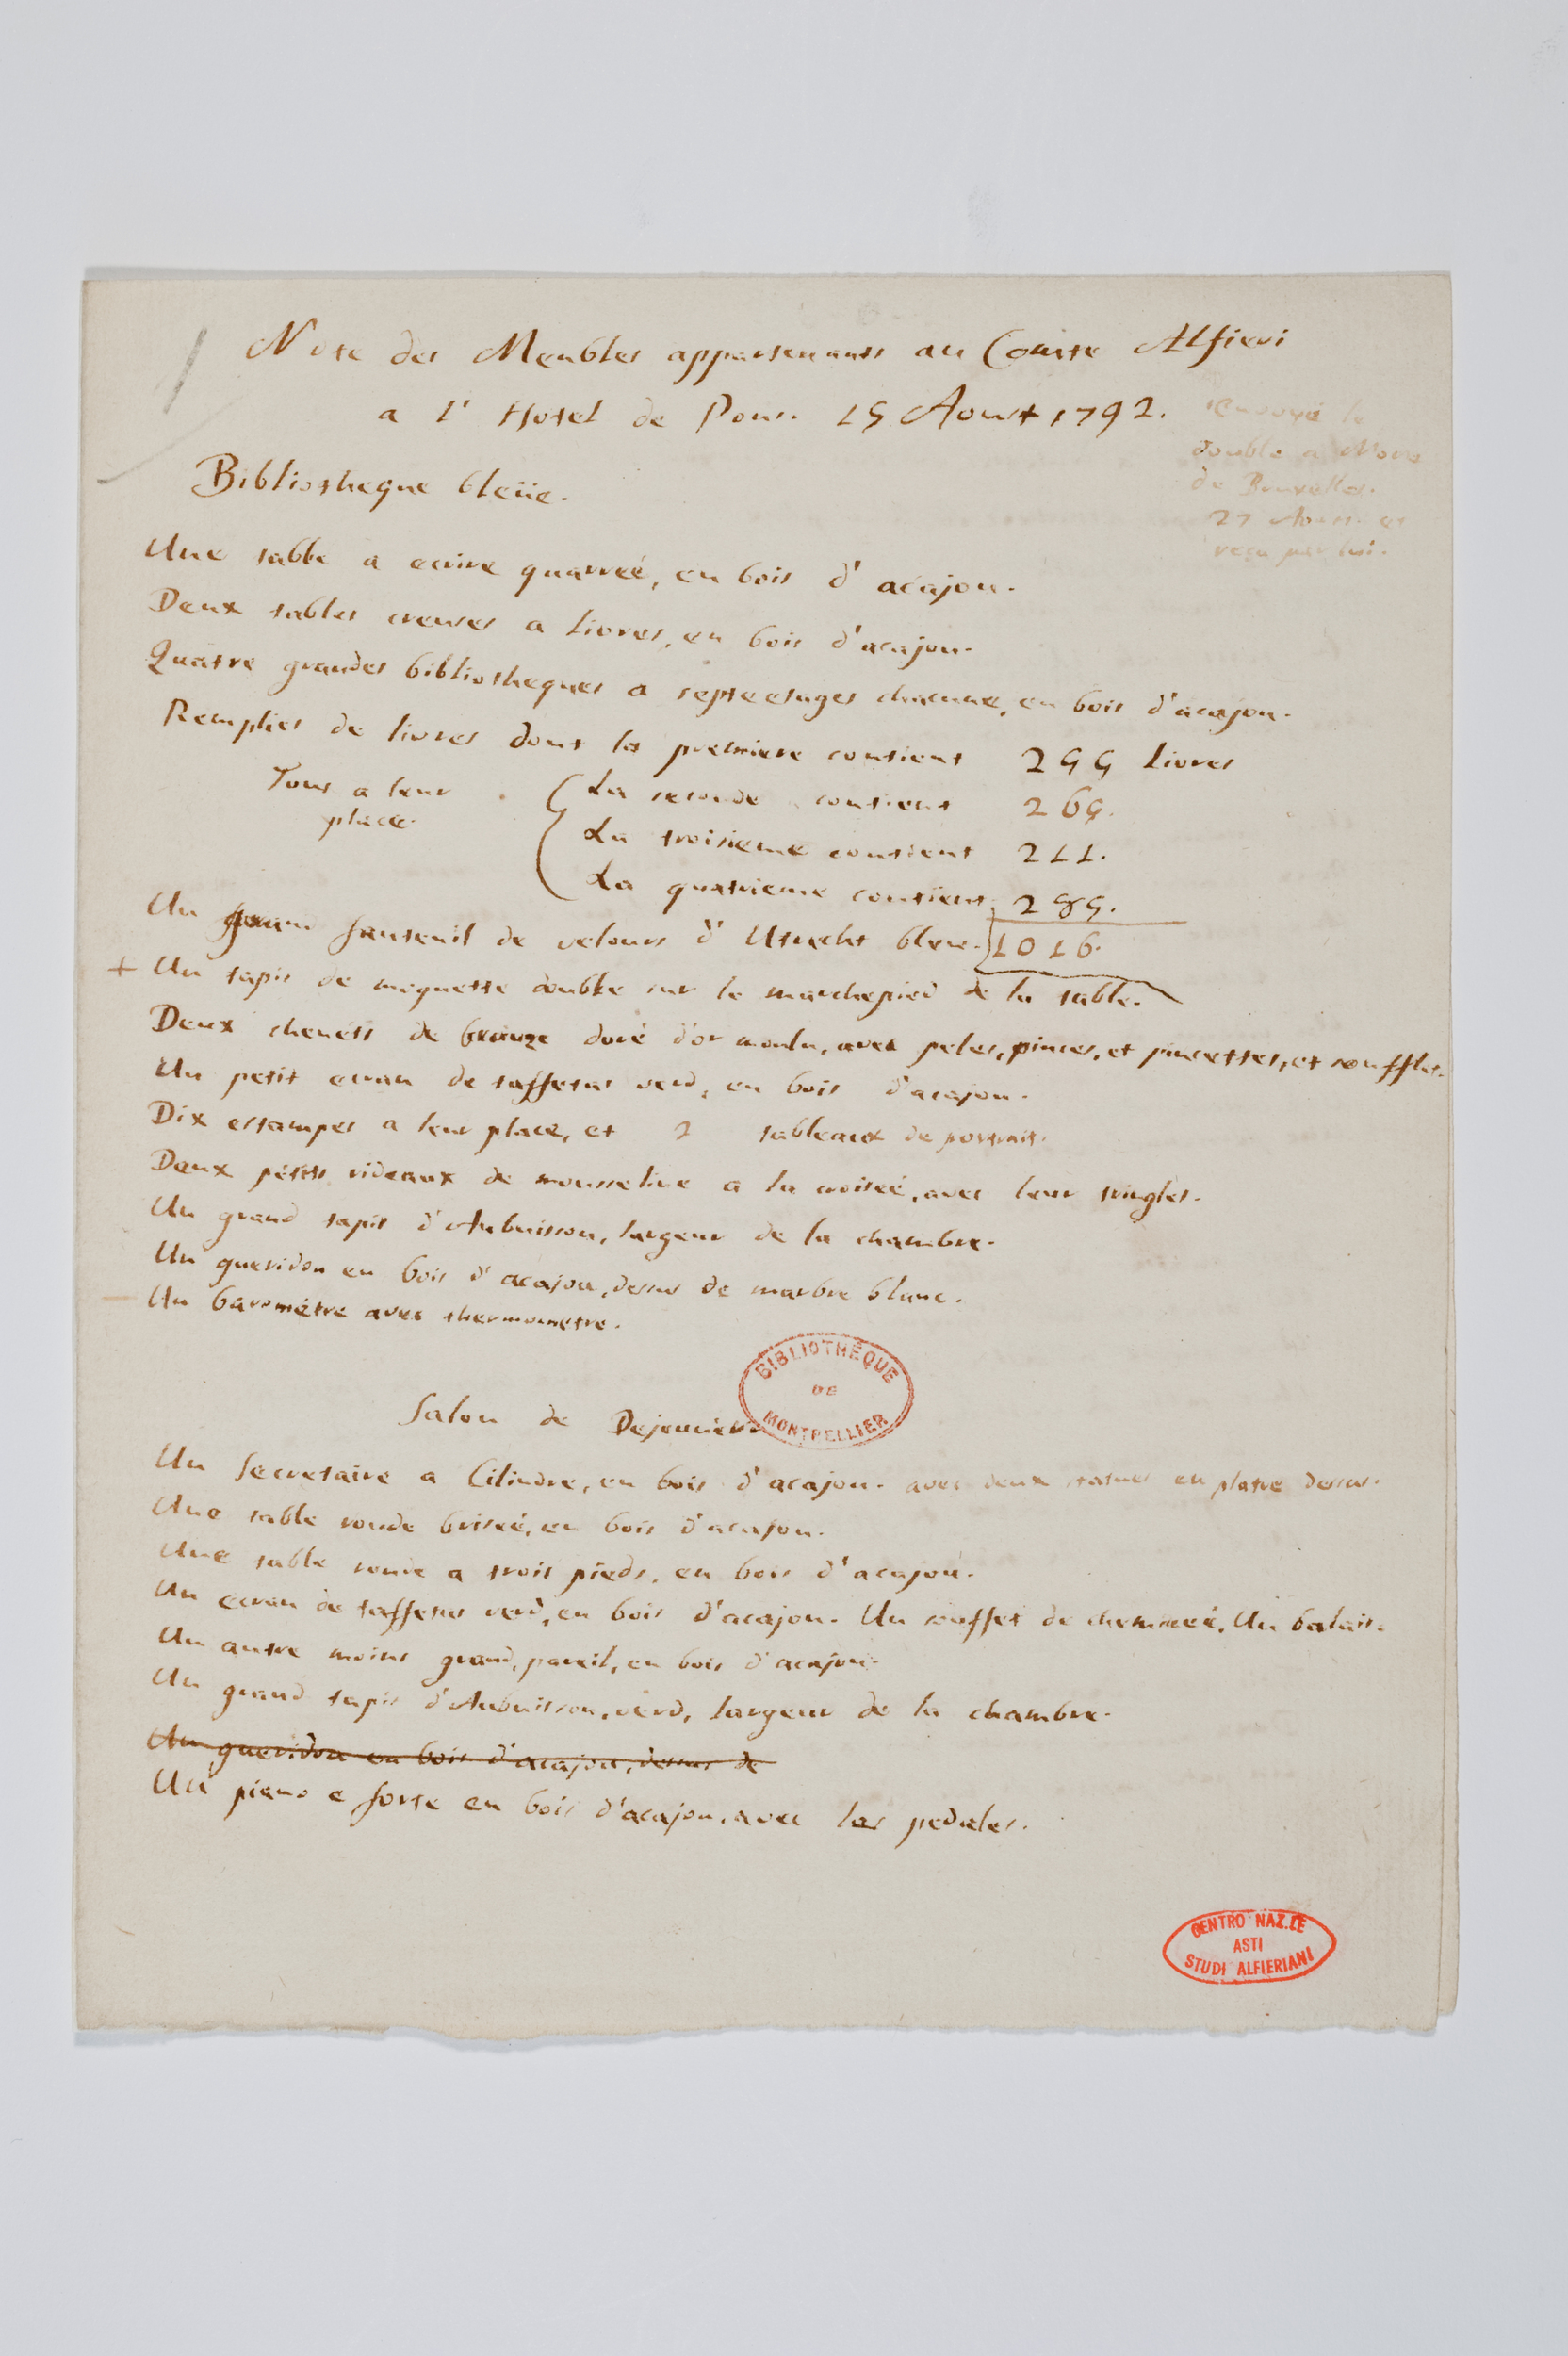 Note des Meubles appartenants au Comte Alfieri
a l'Hotel de Pons. 15 Aoust 1792.
Envoyé le
double a
de Bruxelles.
27 Aoust. et
reçu par lui.
Bibliotheque bleüe.
Une table a ecrire quarreé, en bois d'acajou.
Deux tables creuses a livres, en bois d'acajou.
Quatre grandes bibliotheques a septe etages chacune, en bois d'acajou.
Remplies de livres dont la premiere contient 255 livres
Tous a leur place.
La seconde contient 265.
La troisieme contient 211.
La quatrieme contient 285.
1016.
Un grand fauteuil de velours d'Utrecht bleue.
+ Un tapis de moquette double sur le marchepied de la table.
Deux chenéts de bronze doré d'or moulu, avec peles, pinces, et pincettes, et soufflet.
Un petit ecran de taffetas verd, en bois d'acajou.
Dix estampes a leur place, et 2 tableaux de portrait.
Deux petits rideaux de mousseline a la croiseé, avec leur tringles.
Un grand tapis d'Aubuisson, largeur de la chambre.
Un gueridon en bois d'acajou, dessus de marbre blanc.
Un barométre avec thermometre.
BIBLIOTHÈQUE DE MONTPELLIER
Salon de Dejeuner.
Un Secretaire a Cilindre, en bois d'acajou. avec deux statues en platre dessus.
Une table ronde briseé, en bois d'acajou.
Une table ronde a trois pieds, en bois d'acajou.
Un ecran de taffetas verd, en bois d'acajou. Un soufflet de chemineé. Un balais.
Un autre moins grand, pareil, en bois d'acajou.
Un grand tapis d'Aubuisson, verd, largeur de la chambre.
Un gueridon en bois d'acajou, dessus de
Un piano e forte en bois d'acajou, avec les pedales.
CENTRO NAZ.LE
ASTI
STUDI ALFIERIANI